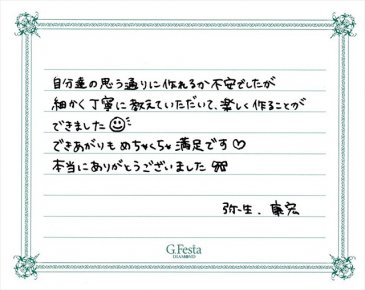 自分達の思う通りに作れるか不安でしたが
細かく丁寧に教えていただいて、楽しく作ることが
できました
できあがりもめちゃくちゃ満足です♡
本当にありがとうございました
弥生、康宏
G.Festa
DIAMOND